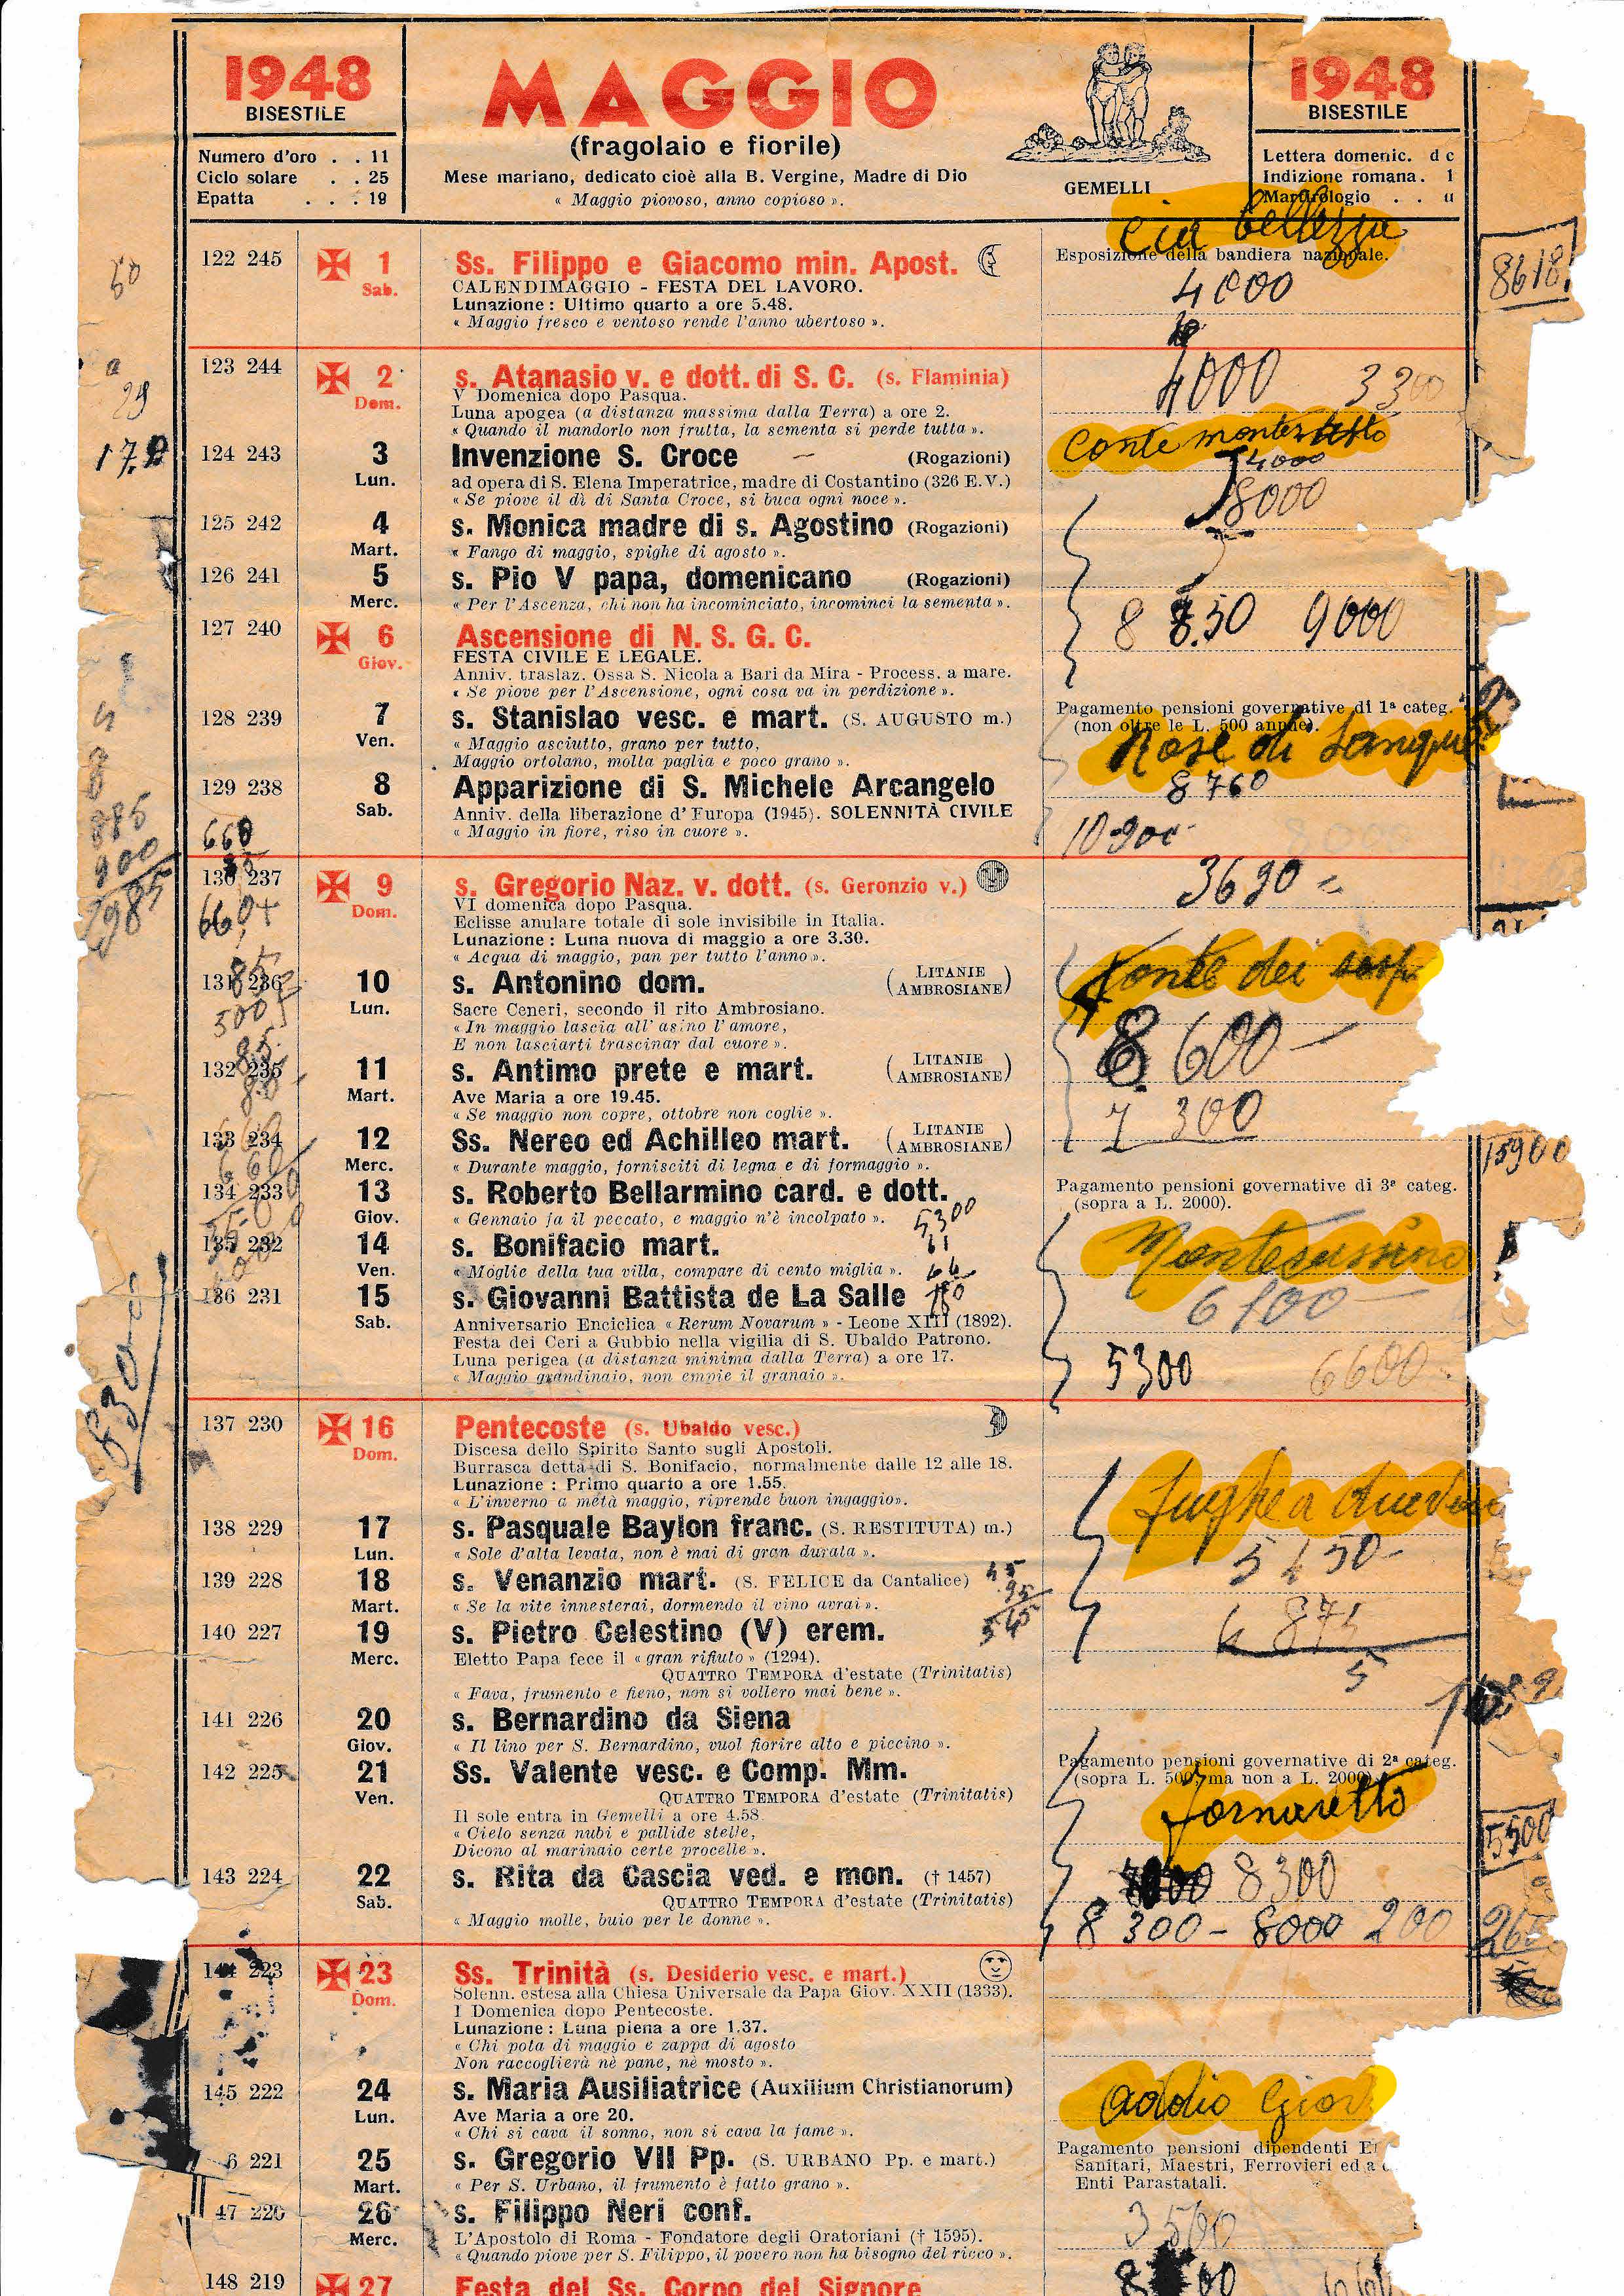 1948
BISESTILE
Numero d'oro . . 11
Ciclo solare . . 25
Epatta . . . 19
MAGGIO
(fragolaio e fiorile)
Mese mariano, dedicato cioè alla B. Vergine, Madre di Dio
« Maggio piovoso, anno copioso ».
GEMELLI
1948
BISESTILE
Lettera domenic. d c
Indizione romana. 1
Martirologio . . u
122 245
1
Sab.
Ss. Filippo e Giacomo min. Apost.
CALENDIMAGGIO - FESTA DEL LAVORO.
Lunazione: Ultimo quarto a ore 5.48.
« Maggio fresco e ventoso rende l'anno ubertoso ».
bellezza
Esposizione della bandiera nazionale.
4000
8618
50
123 244
2
Dom.
s. Atanasio v. e dott. di S. C. (s. Flaminia)
V Domenica dopo Pasqua.
Luna apogea (a distanza massima dalla Terra) a ore 2.
« Quando il mandorlo non frutta, la sementa si perde tutta ».
4000 3300
29
124 243
3
Lun.
Invenzione S. Croce (Rogazioni)
ad opera di S. Elena Imperatrice, madre di Costantino (326 E.V.)
« Se piove il dì di Santa Croce, si buca ogni noce ».
Conte
4000
8000
125 242
4
Mart.
s. Monica madre di s. Agostino (Rogazioni)
« Fango di maggio, spighe di agosto ».
126 241
5
Merc.
s. Pio V papa, domenicano (Rogazioni)
« Per l'Ascenza, chi non ha incominciato, incominci la sementa ».
9000
127 240
6
Giov.
Ascensione di N. S. G. C.
FESTA CIVILE E LEGALE.
Anniv. traslaz. Ossa S. Nicola a Bari da Mira - Process. a mare.
« Se piove per l'Ascensione, ogni cosa va in perdizione ».
128 239
7
Ven.
s. Stanislao vesc. e mart. (S. AUGUSTO m.)
« Maggio asciutto, grano per tutto,
Maggio ortolano, molta paglia e poco grano ».
Pagamento pensioni governative di 1ª categ.
(non oltre le L. 500 annue).
Rose di Sangue
8760
129 238
8
Sab.
Apparizione di S. Michele Arcangelo
Anniv. della liberazione d'Europa (1945). SOLENNITÀ CIVILE
« Maggio in fiore, riso in cuore ».
10900
885
900
660
130 237
9
Dom.
s. Gregorio Naz. v. dott. (s. Geronzio v.)
VI domenica dopo Pasqua.
Eclisse anulare totale di sole invisibile in Italia.
Lunazione: Luna nuova di maggio a ore 3.30.
« Acqua di maggio, pan per tutto l'anno ».
3690 =
131 236
10
Lun.
s. Antonino dom. (LITANIE AMBROSIANE)
Sacre Ceneri, secondo il rito Ambrosiano.
« In maggio lascia all'asino l'amore,
E non lasciarti trascinar dal cuore ».
Ponte dei sosp
8600 -
132 235
11
Mart.
s. Antimo prete e mart. (LITANIE AMBROSIANE)
Ave Maria a ore 19.45.
« Se maggio non copre, ottobre non coglie ».
7300
133 234
12
Merc.
Ss. Nereo ed Achilleo mart. (LITANIE AMBROSIANE)
« Durante maggio, fornisciti di legna e di formaggio ».
15900
134 233
13
Giov.
s. Roberto Bellarmino card. e dott.
« Gennaio fa il peccato, e maggio n'è incolpato ».
5300
Pagamento pensioni governative di 3ª categ.
(sopra a L. 2000).
135 232
14
Ven.
s. Bonifacio mart.
« Moglie della tua villa, compare di cento miglia ».
Montecassino
136 231
15
Sab.
s. Giovanni Battista de La Salle
Anniversario Enciclica « Rerum Novarum » - Leone XIII (1892).
Festa dei Ceri a Gubbio nella vigilia di S. Ubaldo Patrono.
Luna perigea (a distanza minima dalla Terra) a ore 17.
« Maggio grandinaio, non empie il granaio ».
6100 -
5300 6600
137 230
16
Dom.
Pentecoste (s. Ubaldo vesc.)
Discesa dello Spirito Santo sugli Apostoli.
Burrasca detta di S. Bonifacio, normalmente dalle 12 alle 18.
Lunazione: Primo quarto a ore 1.55.
« L'inverno a metà maggio, riprende buon ingaggio».
138 229
17
Lun.
s. Pasquale Baylon franc. (S. RESTITUTA) m.)
« Sole d'alta levata, non è mai di gran durata ».
5450-
139 228
18
Mart.
s. Venanzio mart. (S. FELICE da Cantalice)
« Se la vite innesterai, dormendo il vino avrai ».
6875
140 227
19
Merc.
s. Pietro Celestino (V) erem.
Eletto Papa fece il « gran rifiuto » (1294).
QUATTRO TEMPORA d'estate (Trinitatis)
« Fava, frumento e fieno, non si vollero mai bene ».
5
141 226
20
Giov.
s. Bernardino da Siena
« Il lino per S. Bernardino, vuol fiorire alto e piccino ».
142 225
21
Ven.
Ss. Valente vesc. e Comp. Mm.
QUATTRO TEMPORA d'estate (Trinitatis)
Il sole entra in Gemelli a ore 4.58.
« Cielo senza nubi e pallide stelle,
Dicono al marinaio certe procelle ».
Pagamento pensioni governative di 2ª categ.
(sopra L. 500, ma non a L. 2000).
fornaretto
5500
143 224
22
Sab.
s. Rita da Cascia ved. e mon. († 1457)
QUATTRO TEMPORA d'estate (Trinitatis)
« Maggio molle, buio per le donne ».
8300
8300 - 8000 200
144 223
23
Dom.
Ss. Trinità (s. Desiderio vesc. e mart.)
Solenn. estesa alla Chiesa Universale da Papa Giov. XXII (1333).
I Domenica dopo Pentecoste.
Lunazione: Luna piena a ore 1.37.
« Chi pota di maggio e zappa di agosto
Non raccoglierà nè pane, nè mosto ».
145 222
24
Lun.
s. Maria Ausiliatrice (Auxilium Christianorum)
Ave Maria a ore 20.
« Chi si cava il sonno, non si cava la fame ».
addio
6 221
25
Mart.
s. Gregorio VII Pp. (S. URBANO Pp. e mart.)
« Per S. Urbano, il frumento è fatto grano ».
Pagamento pensioni dipendenti
Sanitari, Maestri, Ferrovieri ed a
Enti Parastatali.
47 220
26
Merc.
s. Filippo Neri conf.
L'Apostolo di Roma - Fondatore degli Oratoriani († 1595).
« Quando piove per S. Filippo, il povero non ha bisogno del ricco ».
3500
148 219
27
Festa del Ss. Corpo del Signore